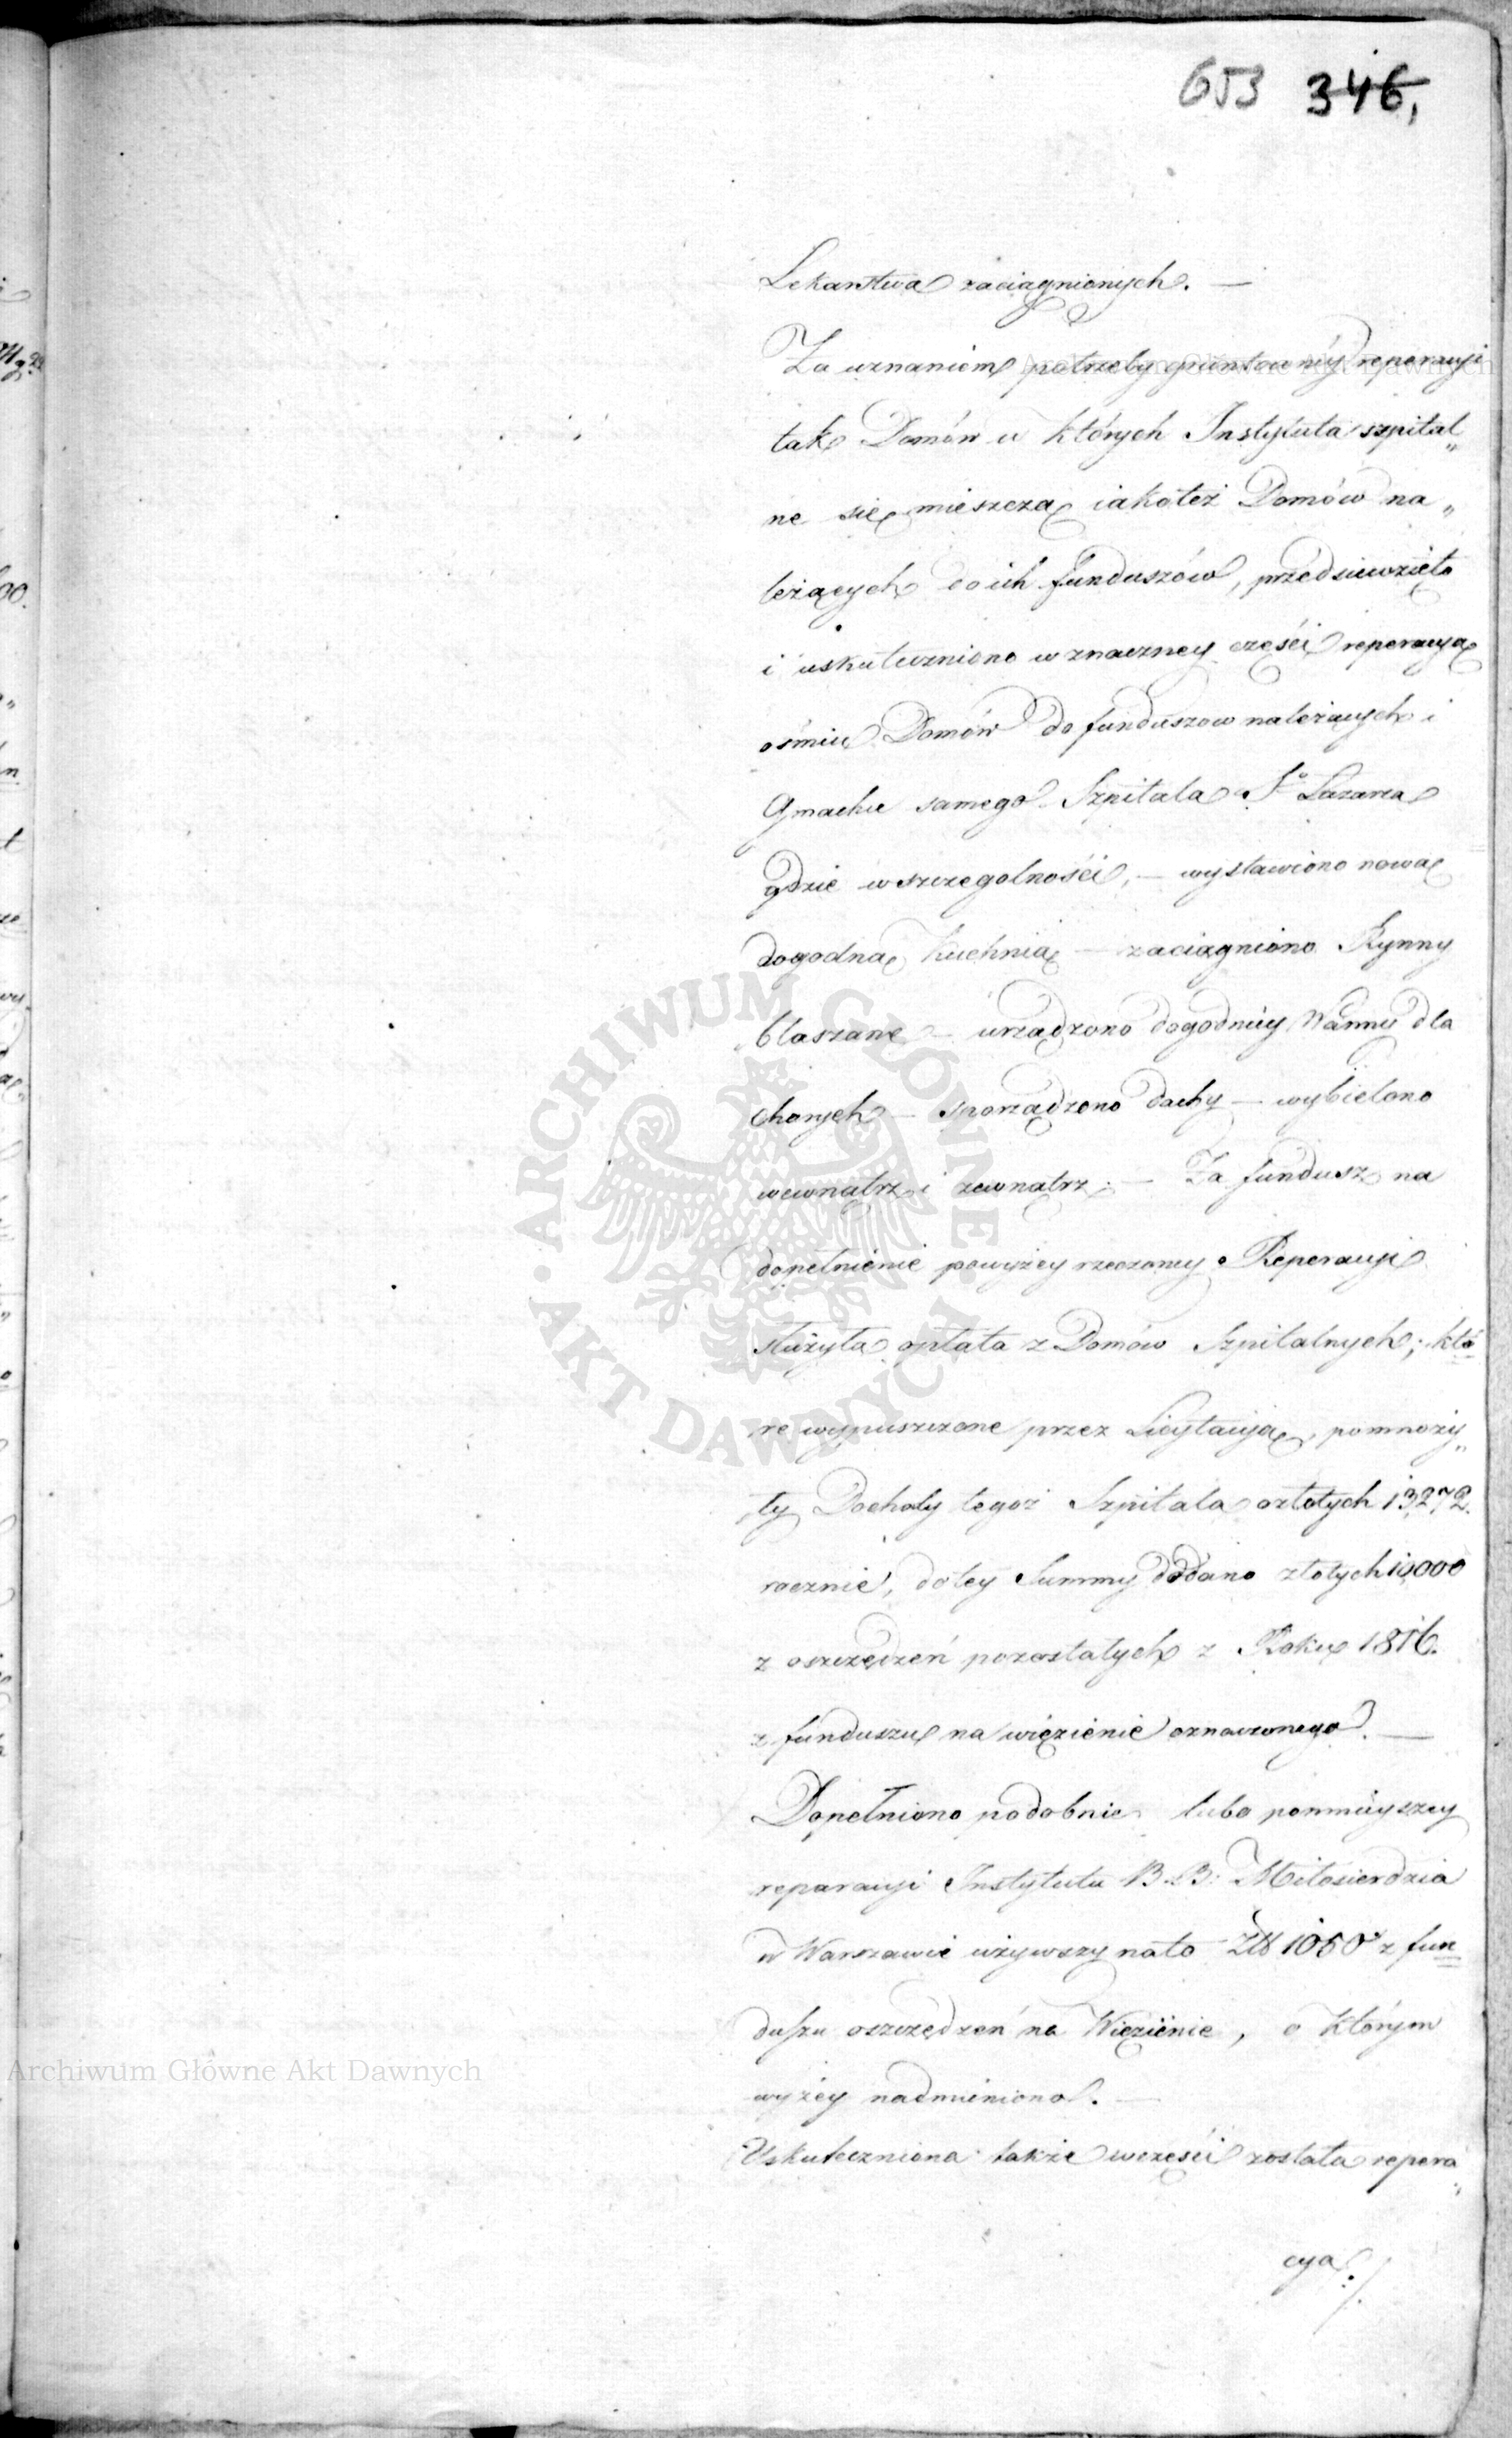 653 346,
Lekarstwa zaciągnionych. —
Za uznaniem potrzeby gruntowney reperacyi
tak Domów w których Instytuta szpital„
ne się mieszczą iako też Domów na„
leżących do ich funduszów, przedsiewzięto
i uskuteczniono w znaczney części reperacyą
ośmiu Domów do funduszow należących i
Gmachu samego Szpitala Sgo Łazarza
gdzie w szczegolności, — wystawiono nową
dogodną Kuchnią — zaciągniono Rynny
blaszane — urządzono dogodniey Wanny dla
chorych — sporządzono dachy — wybielono
wewnątrz i zewnątrz. — Za fundusz na
dopełnienie powyżey rzeczoney Reperacyi
służyła opłata z Domów Szpitalnych; któ
re wypuszczone przez Licytacyą, pomnoży„
ły Dochody tegoż Szpitala o złotych 13,272.
rocznie, do tey Summy dodano złotych 10,000
z oszczędzeń pozostałych z Roku 1816.
z funduszu na więzienie oznaczonego. —
Dopełniono podobnie lubo pomnieyszey
reparacyi Instytutu B. B: Miłosierdzia
w Warszawie używszy na to Zł 1050 z fun
duszu oszczędzeń na Więzienie, o którym
wyżey nadmieniono. —
Uskuteczniona także w części została repera„
cya:/.
Archiwum Główne Akt Dawnych
Archiwum Główne Akt Dawnych
ARCHIWUM GŁÓWNE • AKT DAWNYCH •